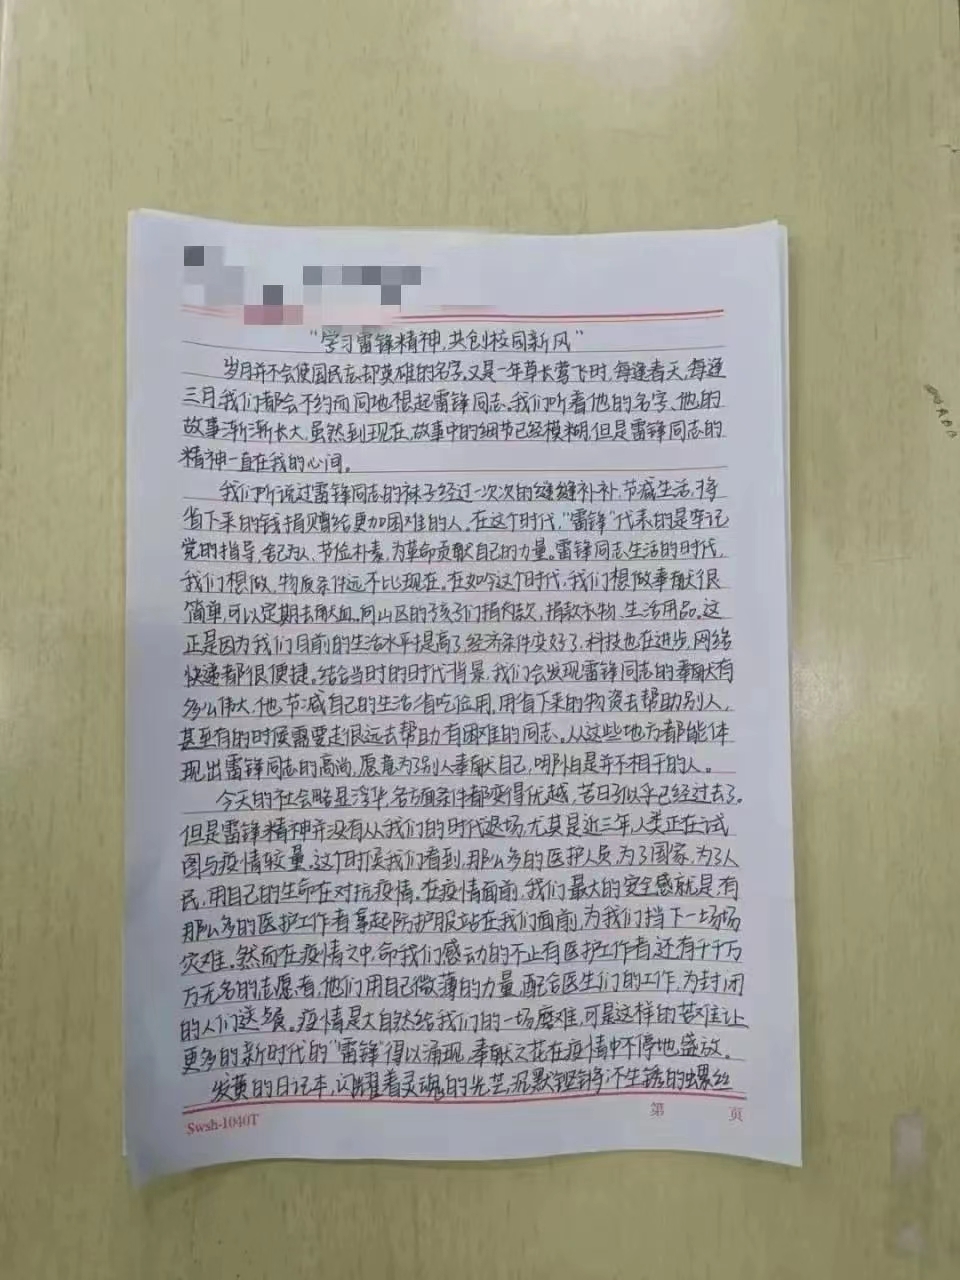 “学习雷锋精神，共创校园新风”
岁月并不会使国民忘却英雄的名字。又是一年草长莺飞时，每逢春天，每逢
三月我们都会不约而同地想起雷锋同志。我们听着他的名字、他的
故事渐渐长大，虽然到现在，故事中的细节已经模糊，但是雷锋同志的
精神一直在我的心间。
我们听说过雷锋同志的袜子经过一次次的缝缝补补，节减生活，将
省下来的钱捐赠给更加困难的人。在这个时代，“雷锋”代表的是牢记
党的指导，舍己为人、节俭朴素，为革命贡献自己的力量。雷锋同志生活的时代，
我们想做，物质条件远不比现在。在如今这个时代，我们想做奉献很
简单，可以定期去献血。向山区的孩子们捐肉款，捐款衣物、生活用品。这
正是因为我们目前的生活水平提高了，经济条件变好了，科技也在进步，网络
快递都很便捷。结合当时的时代背景，我们会发现雷锋同志的奉献有
多么伟大，他节减自己的生活，省吃俭用，用省下来的物资去帮助别人，
甚至有的时候需要走很远去帮助有困难的同志。从这些地方都能体
现出雷锋同志的高尚，愿意为了别人奉献自己，哪怕是并不相干的人。
今天的社会略显浮华，各方面条件都变得优越，苦日子似乎已经过去了。
但是雷锋精神并没有从我们的时代退场，尤其是近三年，人类正在试
图与疫情较量。这个时候我们看到，那么多的医护人员，为了国家，为了人
民，用自己的生命在对抗疫情。在疫情面前，我们最大的安全感就是，有
那么多的医护工作者拿起防护服站在我们面前，为我们挡下一场场
灾难。然而在疫情之中，命我们感动的不止有医护工作者，还有千千万
万无名的志愿者，他们用自己微薄的力量，配合医生们的工作，为封闭
的人们送餐。疫情是大自然给我们的一场磨难，可是这样的苦难让
更多的新时代的“雷锋”得以涌现，奉献之花在疫情中不停地盛放。
发黄的日记本，闪耀着灵魂的光芒，沉默铿锵，不生锈的螺丝
Swsh-1040T 第 页